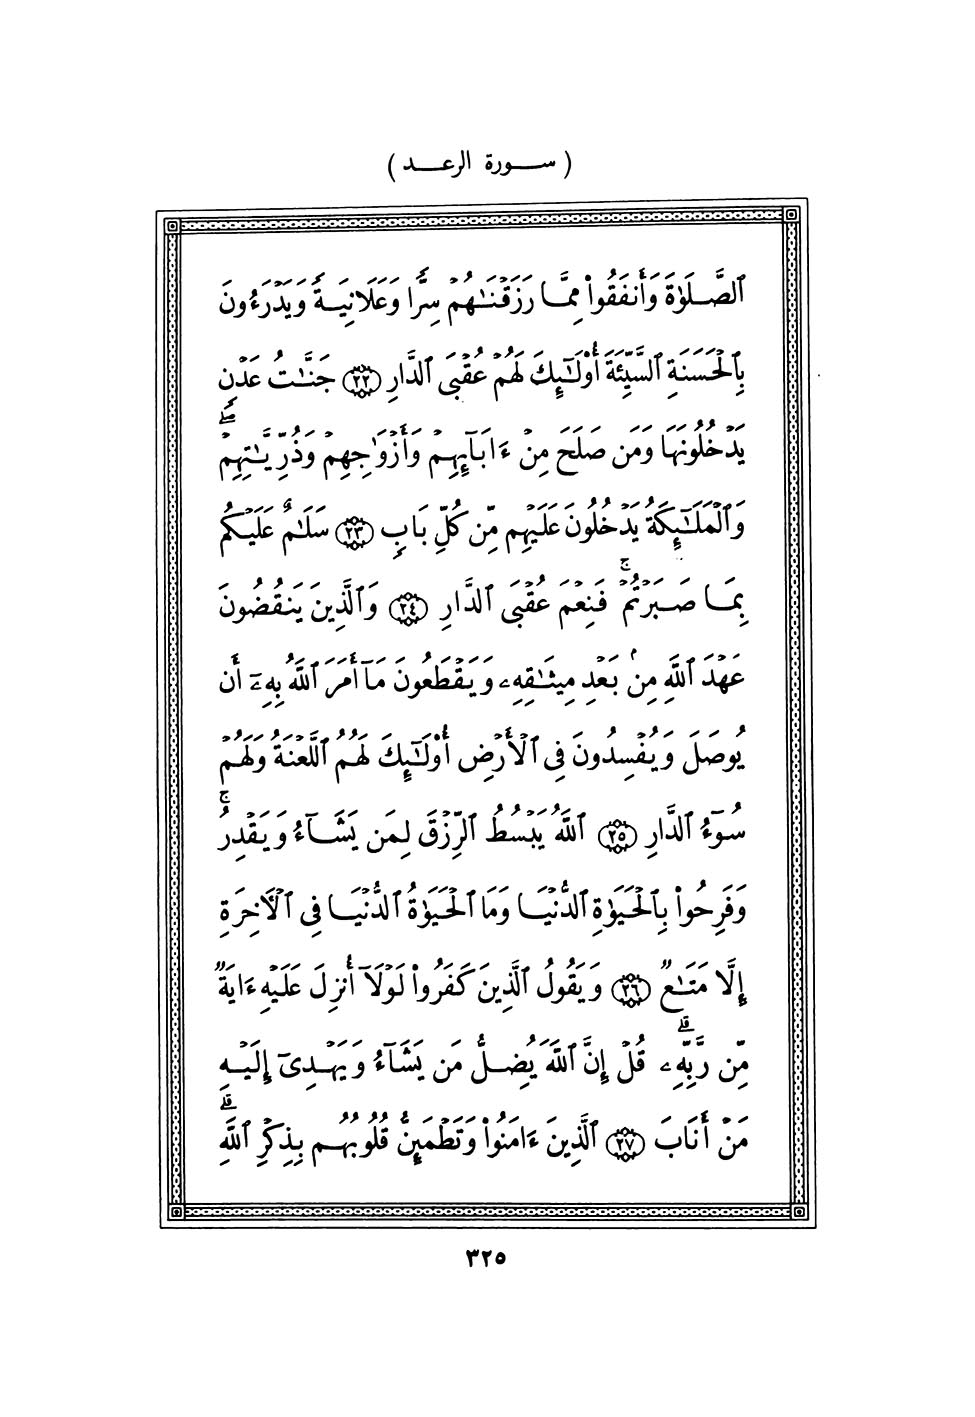 ( سورة الرعد )
ٱلصَّلَوٰةَ وَأَنفَقُوا۟ مِمَّا رَزَقْنَـٰهُمْ سِرًّا وَعَلَانِيَةً وَيَدْرَءُونَ
بِٱلْحَسَنَةِ ٱلسَّيِّئَةَ أُو۟لَـٰٓئِكَ لَهُمْ عُقْبَى ٱلدَّارِ ﴿٢٢﴾ جَنَّـٰتُ عَدْنٍ
يَدْخُلُونَهَا وَمَن صَلَحَ مِنْ ءَابَآئِهِمْ وَأَزْوَٰجِهِمْ وَذُرِّيَّـٰتِهِمْ ۖ
وَٱلْمَلَـٰٓئِكَةُ يَدْخُلُونَ عَلَيْهِم مِّن كُلِّ بَابٍ ﴿٢٣﴾ سَلَـٰمٌ عَلَيْكُم
بِمَا صَبَرْتُمْ ۚ فَنِعْمَ عُقْبَى ٱلدَّارِ ﴿٢٤﴾ وَٱلَّذِينَ يَنقُضُونَ
عَهْدَ ٱللَّهِ مِنۢ بَعْدِ مِيثَـٰقِهِۦ وَيَقْطَعُونَ مَآ أَمَرَ ٱللَّهُ بِهِۦٓ أَن
يُوصَلَ وَيُفْسِدُونَ فِى ٱلْأَرْضِ أُو۟لَـٰٓئِكَ لَهُمُ ٱللَّعْنَةُ وَلَهُمْ
سُوٓءُ ٱلدَّارِ ﴿٢٥﴾ ٱللَّهُ يَبْسُطُ ٱلرِّزْقَ لِمَن يَشَآءُ وَيَقْدِرُ ۚ
وَفَرِحُوا۟ بِٱلْحَيَوٰةِ ٱلدُّنْيَا وَمَا ٱلْحَيَوٰةُ ٱلدُّنْيَا فِى ٱلْـَٔاخِرَةِ
إِلَّا مَتَـٰعٌ ﴿٢٦﴾ وَيَقُولُ ٱلَّذِينَ كَفَرُوا۟ لَوْلَآ أُنزِلَ عَلَيْهِ ءَايَةٌ
مِّن رَّبِّهِۦ ۗ قُلْ إِنَّ ٱللَّهَ يُضِلُّ مَن يَشَآءُ وَيَهْدِىٓ إِلَيْهِ
مَنْ أَنَابَ ﴿٢٧﴾ ٱلَّذِينَ ءَامَنُوا۟ وَتَطْمَئِنُّ قُلُوبُهُم بِذِكْرِ ٱللَّهِ ۗ
٣٢٥